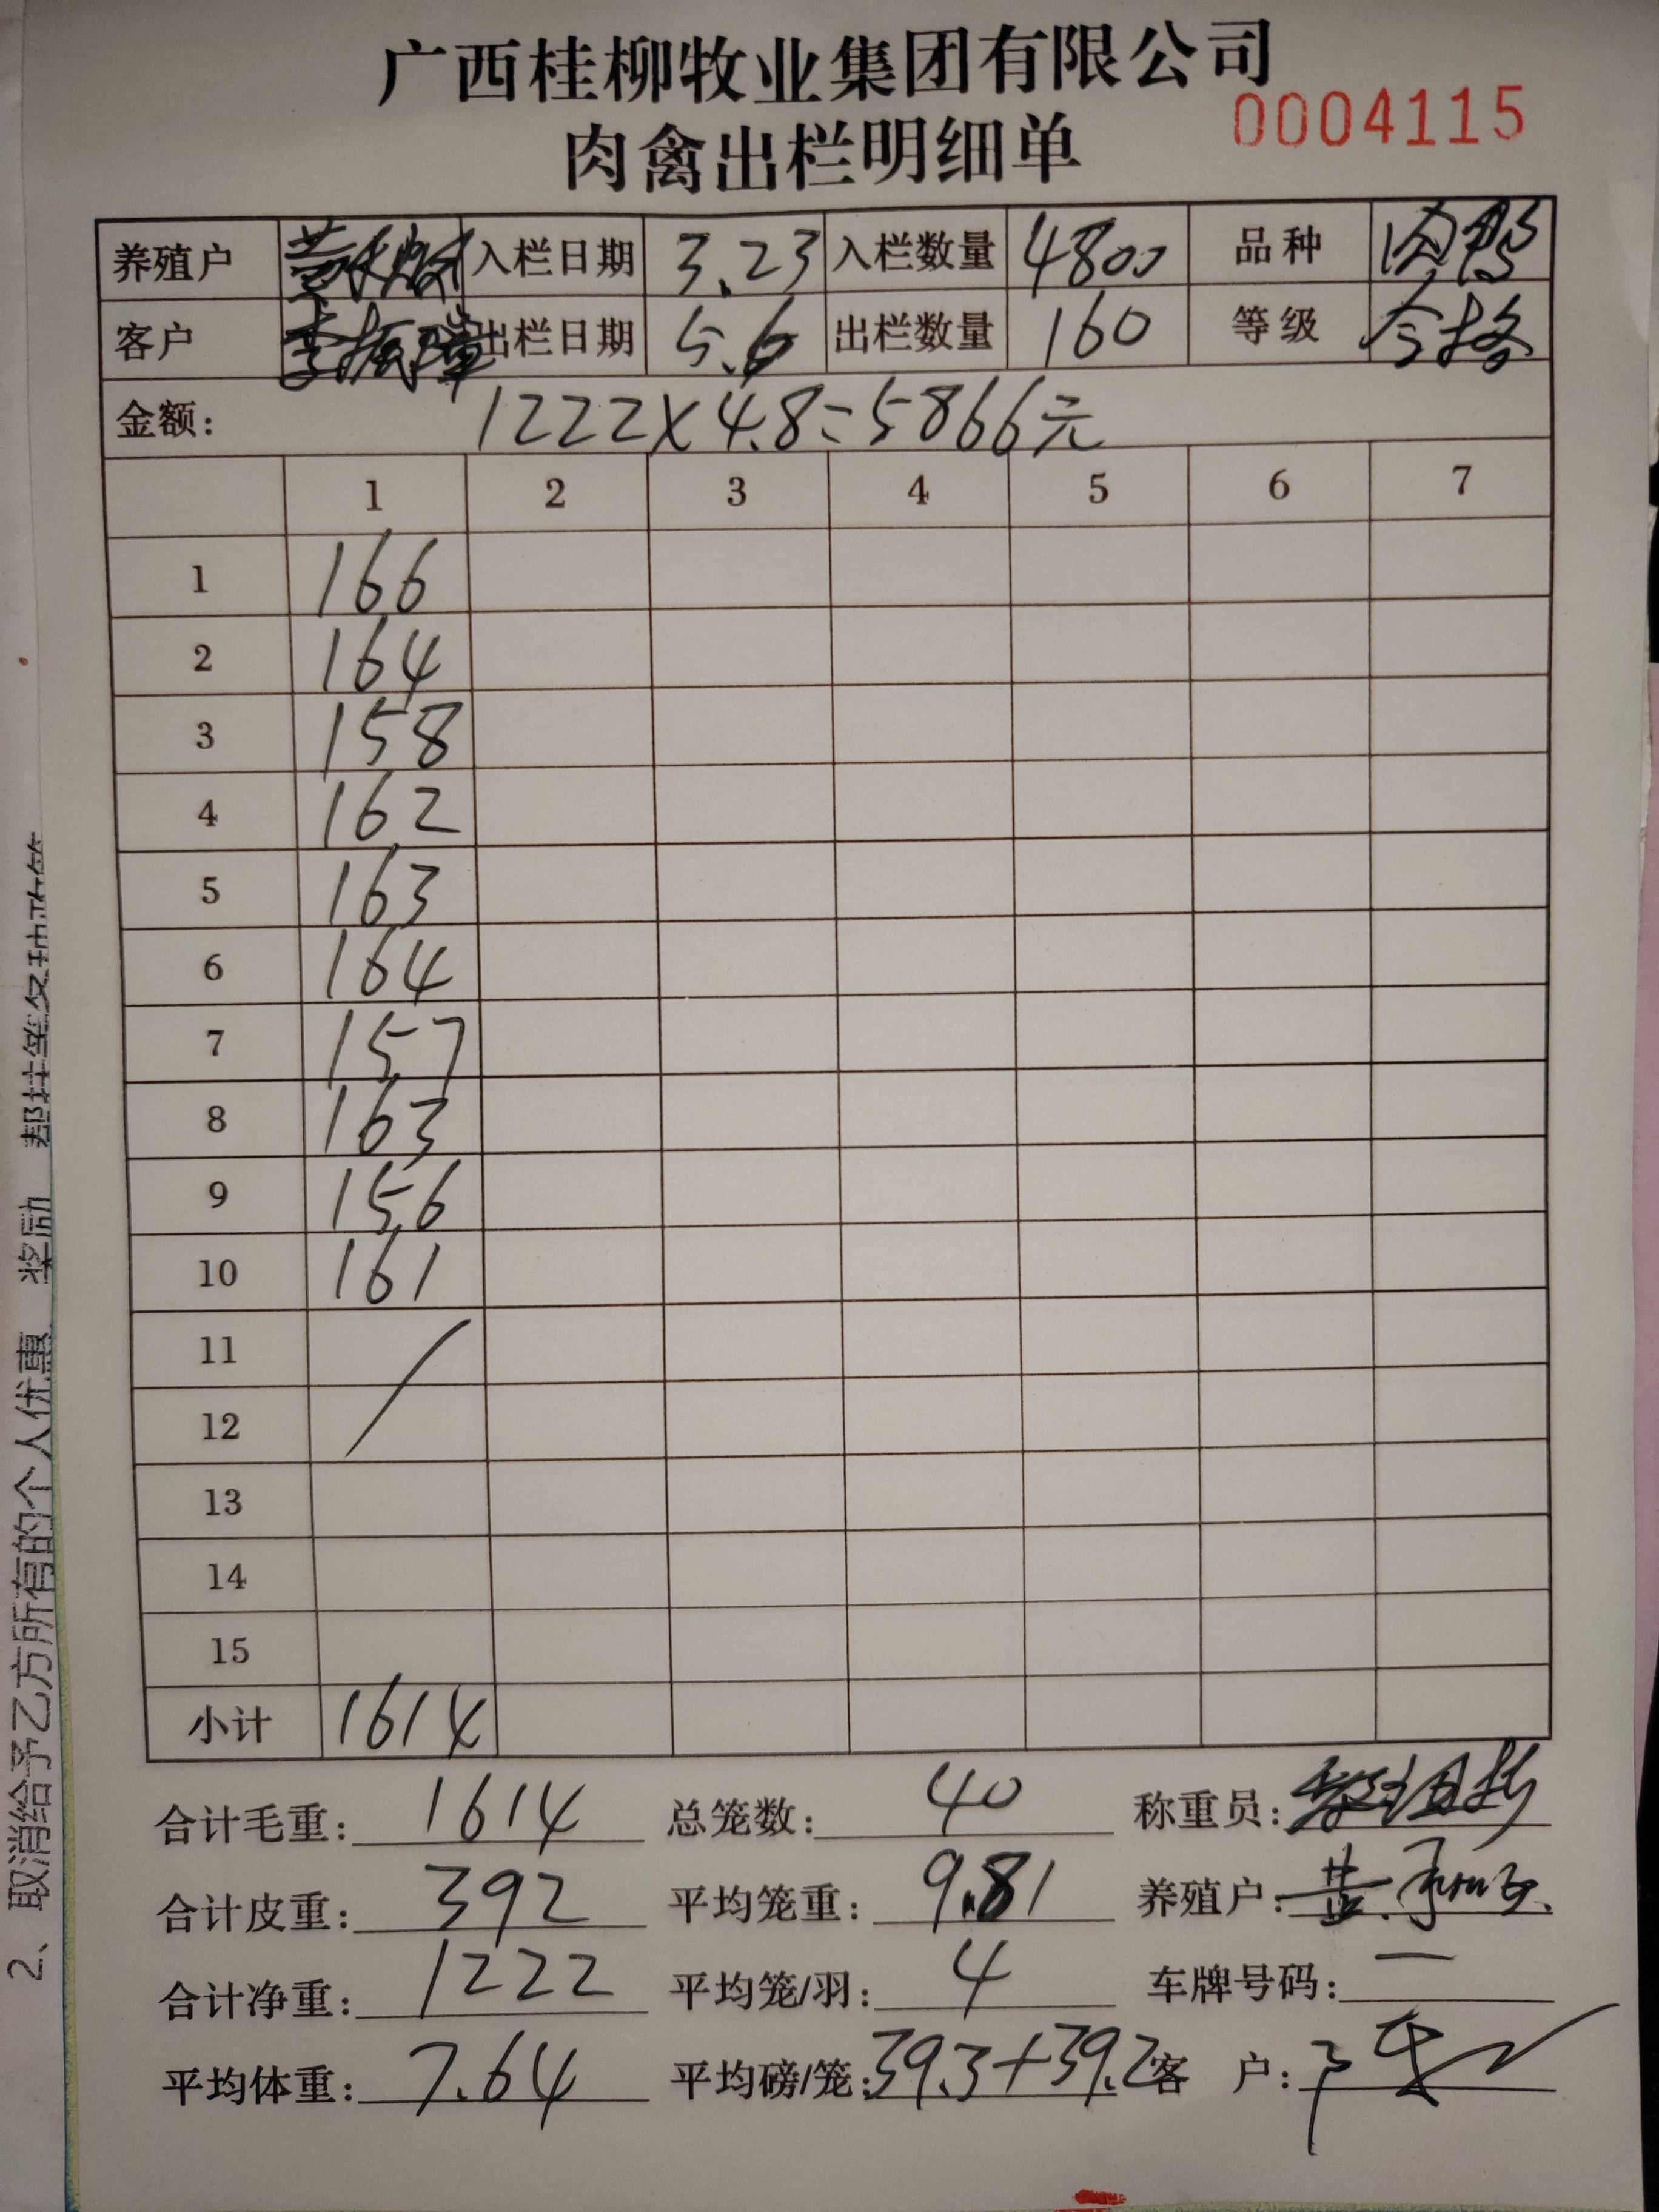 广西桂柳牧业集团有限公司
肉禽出栏明细单 0004115
养殖户 入栏日期 3.23 入栏数量 4800 品种 肉鸭
客户 李振璋 出栏日期 5.6 出栏数量 160 等级 合格
金额: 1222×4.8=5866元
1 2 3 4 5 6 7
1 166
2 164
3 158
4 162
5 163
6 164
7 157
8 163
9 156
10 161
11
12
13
14
15
小计 1614
合计毛重: 1614 总笼数: 40 称重员:
合计皮重: 392 平均笼重: 9.81 养殖户:
合计净重: 1222 平均笼/羽: 4 车牌号码: 一
平均体重: 7.64 平均磅/笼: 39.3+39.2 客 户:
2、取消给予乙方所有的个人优惠、奖励